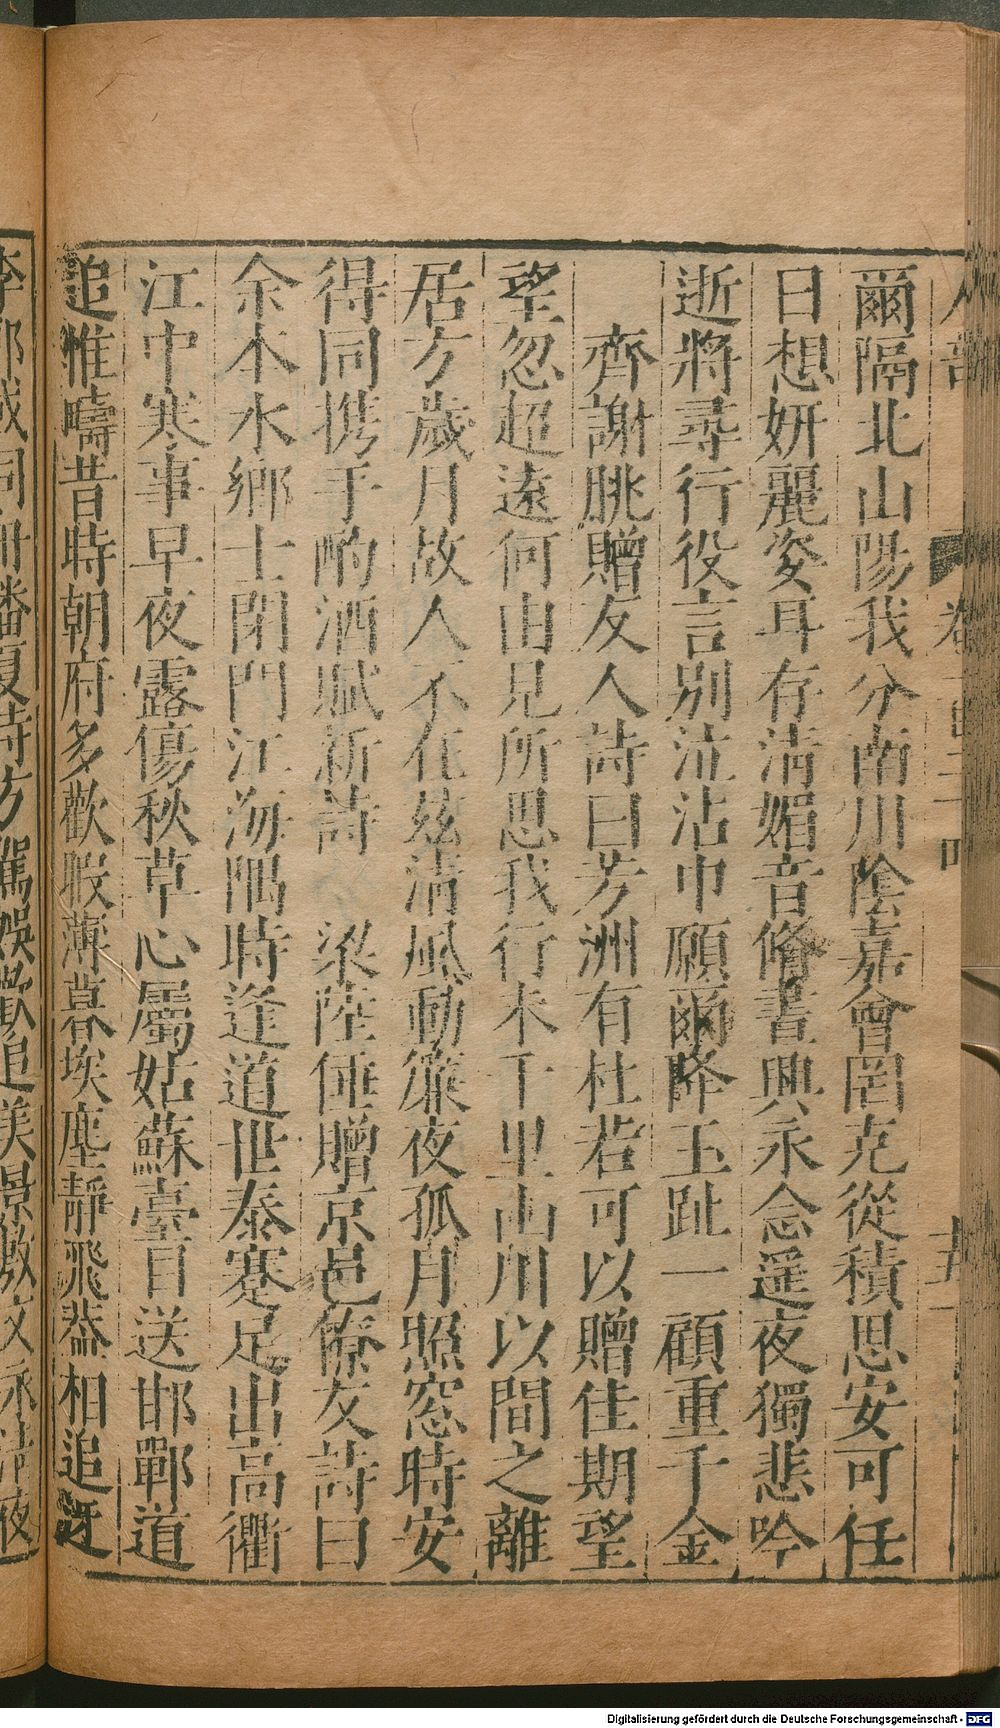 爾隔北山陽我分南川陰嘉會罔克從積思安可任
日想妍麗姿耳存淸媚音脩晝興永念遥夜獨悲吟
逝將尋行役言别泣沾巾願爾降玉趾一顧重千金
齊謝朓贈友人詩曰芳洲有杜若可以贈佳期望
望忽超遠何由見所思我行未千里山川以間之離
居方歲月故人不在兹淸風動簾夜孤月照窓時安
得同携手酌酒賦新詩 梁陸倕贈京邑僚友詩曰
余本水鄉士閉門江海隅時逢道世泰蹇足出高衢
江中寒事早夜露傷秋草心屬姑蘇臺目送邯鄲道
追惟疇昔時朝府多歡暇薄暮埃塵靜飛葢相追訝
李郭或同舟潘夏時方駕娱歡追美景敷文永清夜
Digitalisierung gefördert durch die Deutsche Forschungsgemeinschaft - DFG